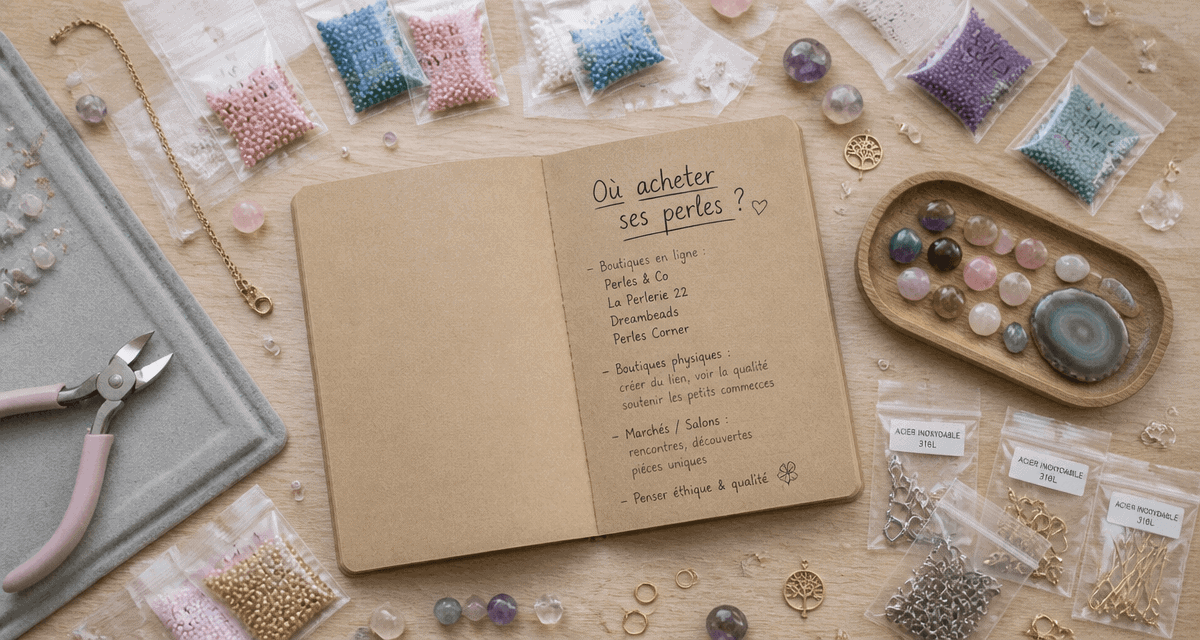 Où acheter
ses perles ? ♡
– Boutiques en ligne :
Perles & Co
La Perlerie 22
Dreambeads
Perles Corner
– Boutiques physiques :
créer du lien, voir la qualité
soutenir les petits commerces
– Marchés / Salons :
rencontres, découvertes
pièces uniques
– Penser éthique & qualité
ACIER INOXYDABLE
316L
ACIER INOXYDABLE
316L
ACIER INOXYDABLE
316L